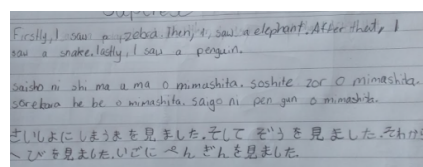 Firstly, I saw a zeba. Then, I, saw a elephant. After that, I
saw a snake. lastly, I saw a penguin.
saisho ni shi ma a ma o mimashita. soshite zor o mimashita.
sorekara he be o mimashita. saigo ni pen gun o mimashita.
さいしよにしまうまを見ました。そして ぞうを見ました。それ
へびを見ました。いごに ぺんぎんを見ました。